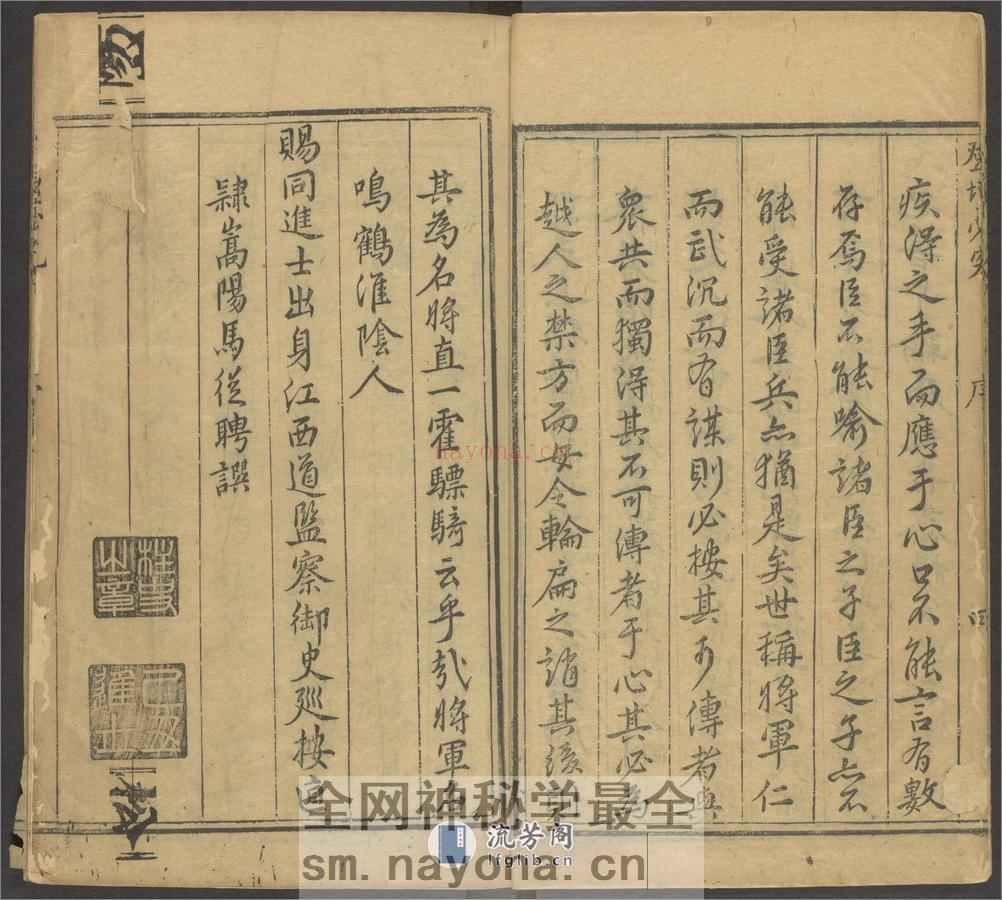 登壇必究
序
疾得之手而應于心口不能言有數
存焉臣不能喻諸臣之子臣之子亦不
能受諸臣兵亦猶是矣世稱將軍仁
而武沉而有謀則必按其可傳者與
眾共而獨得其不可傳者于心其必為
越人之禁方而毋令輪扁之誚其後
其為名將直一霍驃騎云乎哉將軍名
鳴鶴淮陰人
賜同進士出身江西道監察御史廵按直
隸嵩陽馬從聘譔
nayona.cn
全网神秘学最全
流芳阁
lfglib.cn
sm.nayona.cn